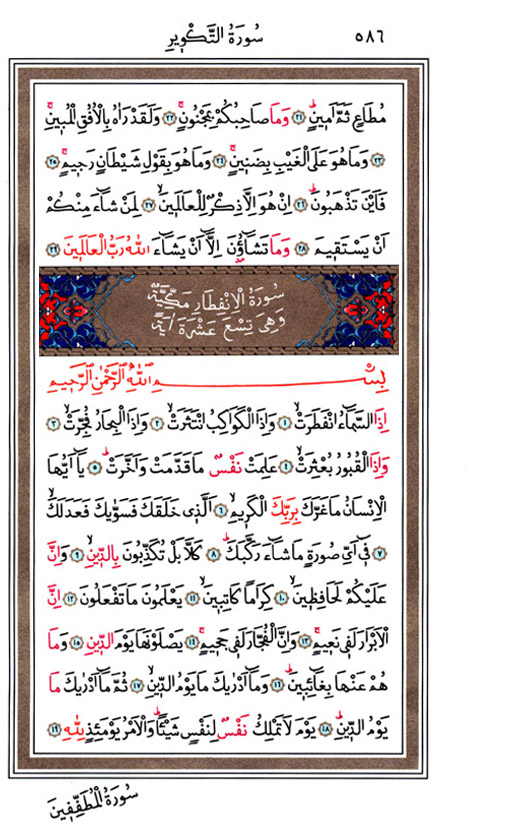 سُورَةُ التَّكْوِيرِ ٥٨٦
مُطَاعٍ ثَمَّ اَمِينٍۜ ﴿٢١﴾ وَمَا صَاحِبُكُمْ بِمَجْنُونٍۚ ﴿٢٢﴾ وَلَقَدْ رَاٰهُ بِالْاُفُقِ الْمُبِينِۚ
﴿٢٣﴾ وَمَا هُوَ عَلَى الْغَيْبِ بِضَنِينٍۚ ﴿٢٤﴾ وَمَا هُوَ بِقَوْلِ شَيْطَانٍ رَجِيمٍۚ ﴿٢٥﴾
فَاَيْنَ تَذْهَبُونَۜ ﴿٢٦﴾ اِنْ هُوَ اِلَّا ذِكْرٌ لِلْعَالَمِينَۙ ﴿٢٧﴾ لِمَنْ شَٓاءَ مِنْكُمْ
اَنْ يَسْتَقِيمَۜ ﴿٢٨﴾ وَمَا تَشَٓاؤُ۫نَ اِلَّٓا اَنْ يَشَٓاءَ اللّٰهُ رَبُّ الْعَالَمِينَ ﴿٢٩﴾
سُورَةُ الْاِنْفِطَارِ مَكِّيَّةٌ
وَهِيَ تِسْعَ عَشْرَةَ اٰيَةً
بِسْمِ اللّٰهِ الرَّحْمٰنِ الرَّحِيمِ
اِذَا السَّمَٓاءُ انْفَطَرَتْۙ ﴿١﴾ وَاِذَا الْكَوَاكِبُ انْتَثَرَتْۙ ﴿٢﴾ وَاِذَا الْبِحَارُ فُجِّرَتْۙ ﴿٣﴾
وَاِذَا الْقُبُورُ بُعْثِرَتْۙ ﴿٤﴾ عَلِمَتْ نَفْسٌ مَا قَدَّمَتْ وَاَخَّرَتْۜ ﴿٥﴾ يَٓا اَيُّهَا
الْاِنْسَانُ مَا غَرَّكَ بِرَبِّكَ الْكَرِيمِۙ ﴿٦﴾ اَلَّذِي خَلَقَكَ فَسَوّٰيكَ فَعَدَلَكَۙ
﴿٧﴾ فِٓي اَيِّ صُورَةٍ مَا شَٓاءَ رَكَّبَكَۜ ﴿٨﴾ كَلَّا بَلْ تُكَذِّبُونَ بِالدِّينِۙ ﴿٩﴾ وَاِنَّ
عَلَيْكُمْ لَحَافِظِينَۙ ﴿١٠﴾ كِرَامًا كَاتِبِينَۙ ﴿١١﴾ يَعْلَمُونَ مَا تَفْعَلُونَ ﴿١٢﴾ اِنَّ
الْاَبْرَارَ لَفِي نَعِيمٍۚ ﴿١٣﴾ وَاِنَّ الْفُجَّارَ لَفِي جَحِيمٍۚ ﴿١٤﴾ يَصْلَوْنَهَا يَوْمَ الدِّينِ ﴿١٥﴾ وَمَا
هُمْ عَنْهَا بِغَٓائِبِينَۜ ﴿١٦﴾ وَمَٓا اَدْرٰيكَ مَا يَوْمُ الدِّينِۙ ﴿١٧﴾ ثُمَّ مَٓا اَدْرٰيكَ مَا
يَوْمُ الدِّينِۜ ﴿١٨﴾ يَوْمَ لَا تَمْلِكُ نَفْسٌ لِنَفْسٍ شَيْـًٔاۜ وَالْاَمْرُ يَوْمَئِذٍ لِلّٰهِ ﴿١٩﴾
سُورَةُ الْمُطَفِّفِينَ